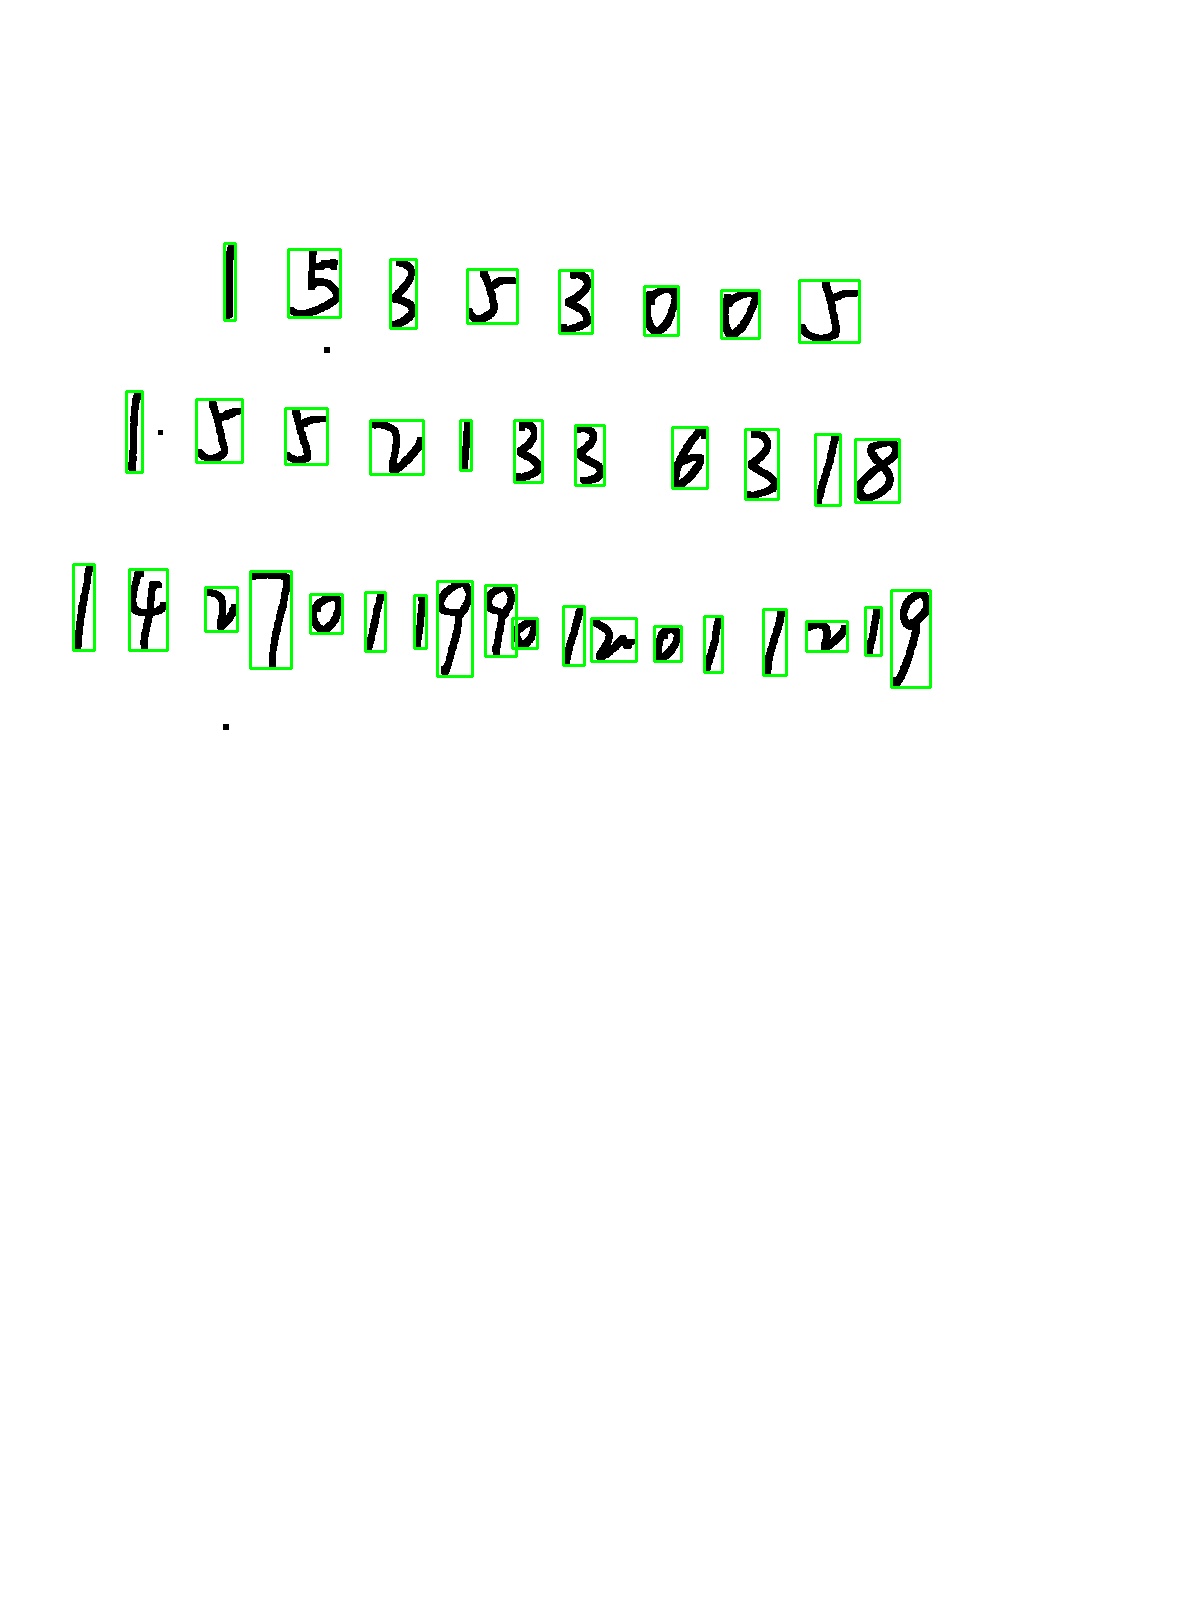 1 5 3 5 3 0 0 5
1 5 5 2 1 3 3 6 3 1 8
1 4 2 7 0 1 1 9 9 0 1 2 0 1 1 2 1 9